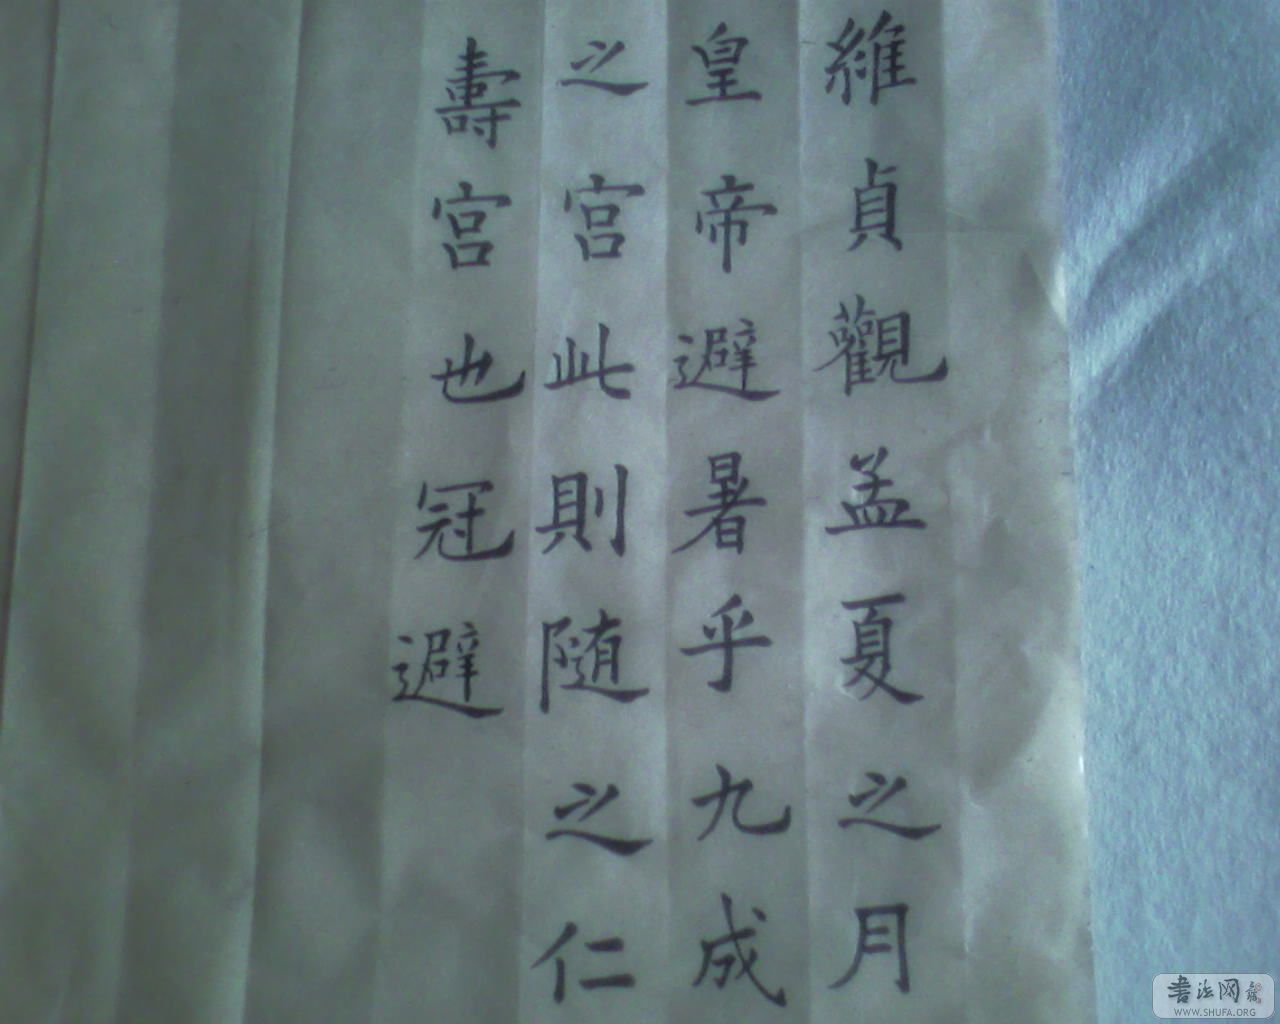 維貞觀孟夏之月
皇帝避暑乎九成
之宮此則随之仁
壽宮也冠避
书法网
WWW.SHUFA.ORG